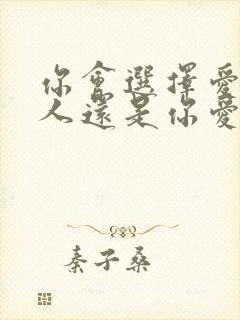 你會選擇愛
人還是你愛
秦子桑